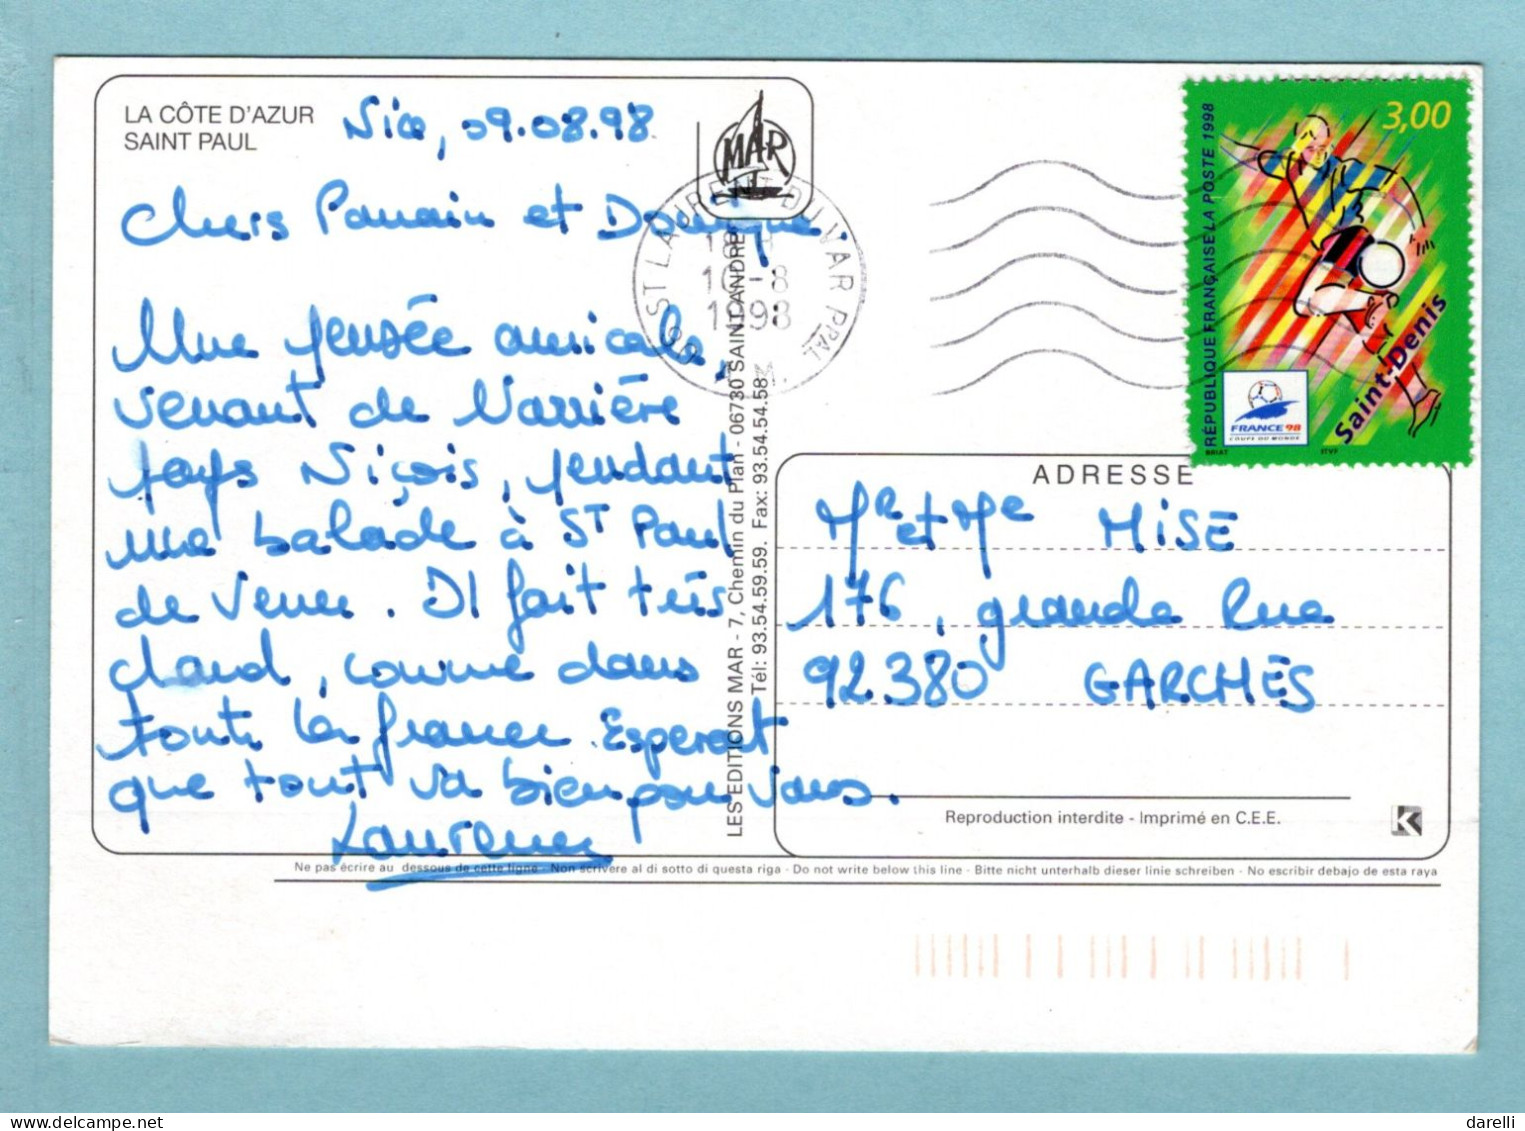 LA CÔTE D'AZUR
SAINT PAUL
Nice, 09.08.98
MAR
Chers Romain et Dominique.
Une pensée amicale,
venant de l'arrière
pays Niçois, pendant
une balade à ST Paul
de Vence. Il fait très
chaud, comme dans
toute la France. Espérant
que tout va bien pour vous.
Laurence
LES EDITIONS MAR - 7, Chemin du Plan - 06730 SAINT ANDRE
Tél: 93.54.59.59. Fax: 93.54.54.58
06 ST LAURENT DU VAR PPAL
10-8
1998
A.M.
3,00
RÉPUBLIQUE FRANÇAISE LA POSTE 1998
Saint-Denis
FRANCE 98
COUPE DU MONDE
BRIAT ITVF
ADRESSE
Mr et Me MISE
176, grande Rue
92380 GARCHES
Reproduction interdite - Imprimé en C.E.E.
K
Ne pas écrire au dessous de cette ligne - Non scrivere al di sotto di questa riga - Do not write below this line - Bitte nicht unterhalb dieser linie schreiben - No escribir debajo de esta raya
darelli